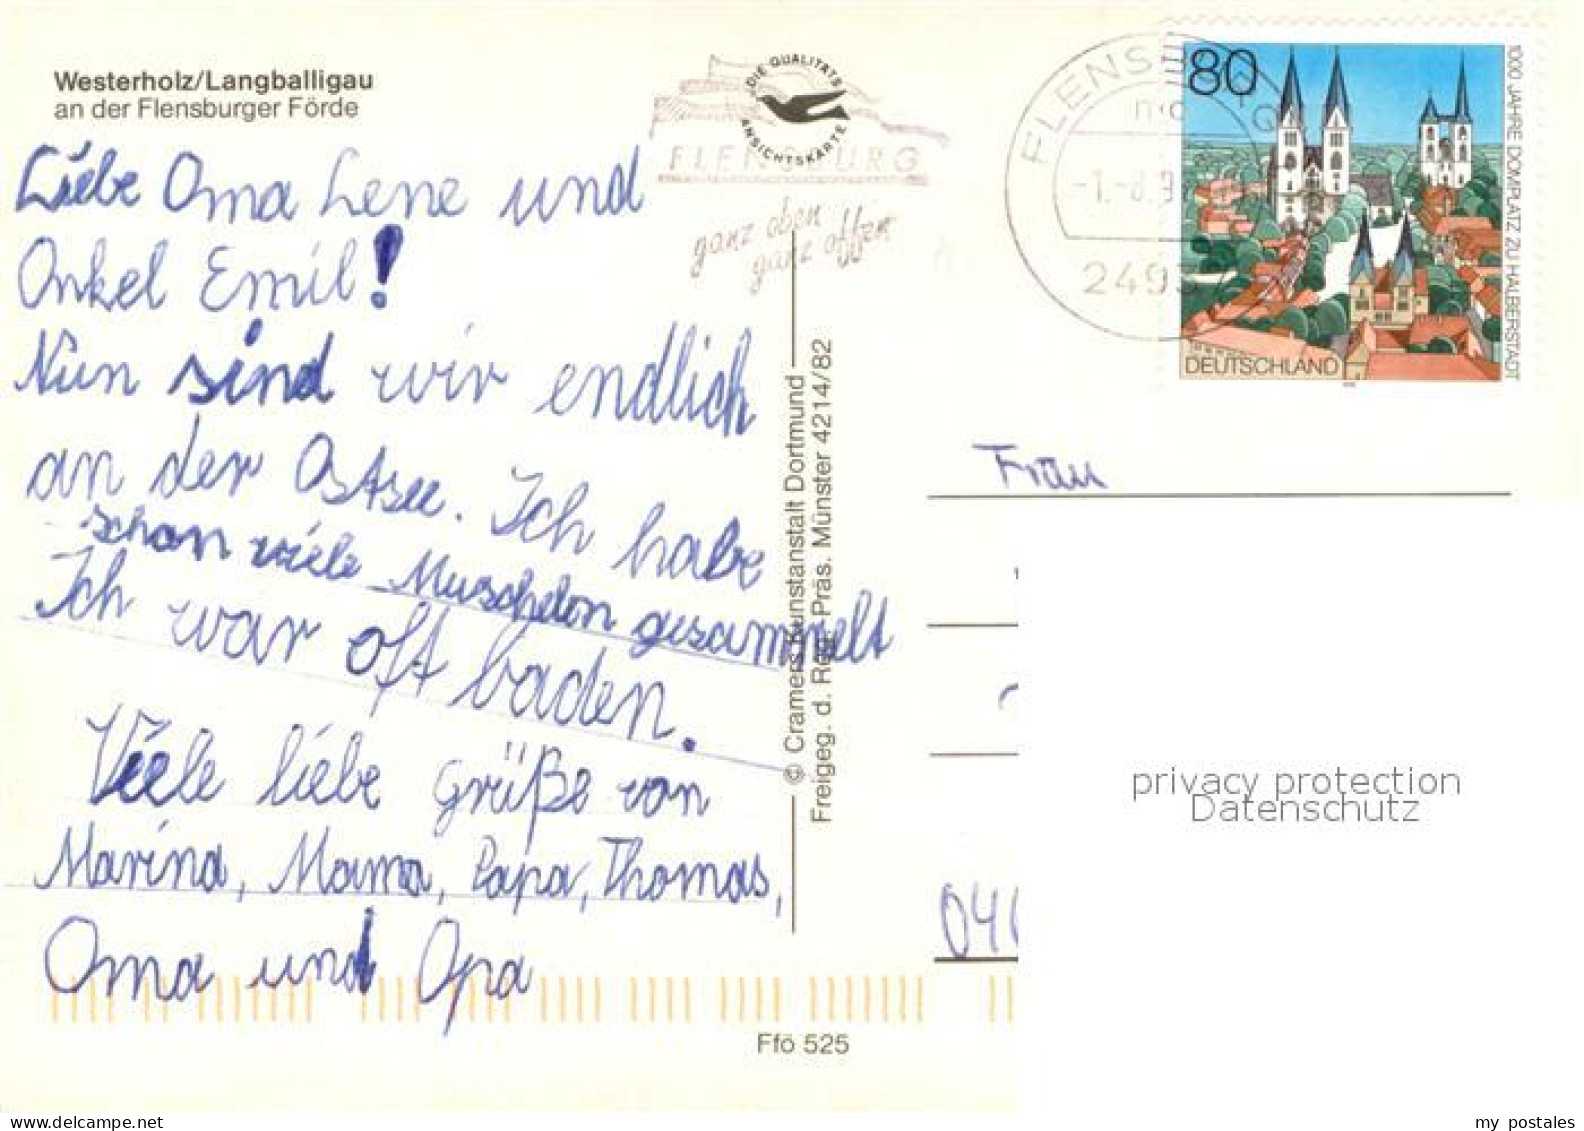 Westerholz/Langballigau
an der Flensburger Förde
Liebe Oma Lene und
Onkel Emil!
Nun sind wir endlich
an der Ostsee. Ich habe
schon viele Muscheln gesammelt
Ich war oft baden.
Viele liebe Grüße von
Marina, Mama, Papa, Thomas,
Oma und Opa
DIE QUALITÄTS
ANSICHTSKARTE
FLENSBURG
ganz oben
ganz offen
© Cramers Kunstanstalt Dortmund
Freigeg. d. Reg. Präs. Münster 4214/82
Ffö 525
FLENSBURG
-1.-8.9
2493
80
1000 JAHRE DOMPLATZ ZU HALBERSTADT
DEUTSCHLAND
Frau
privacy protection
Datenschutz
delcampe.net
my_postales